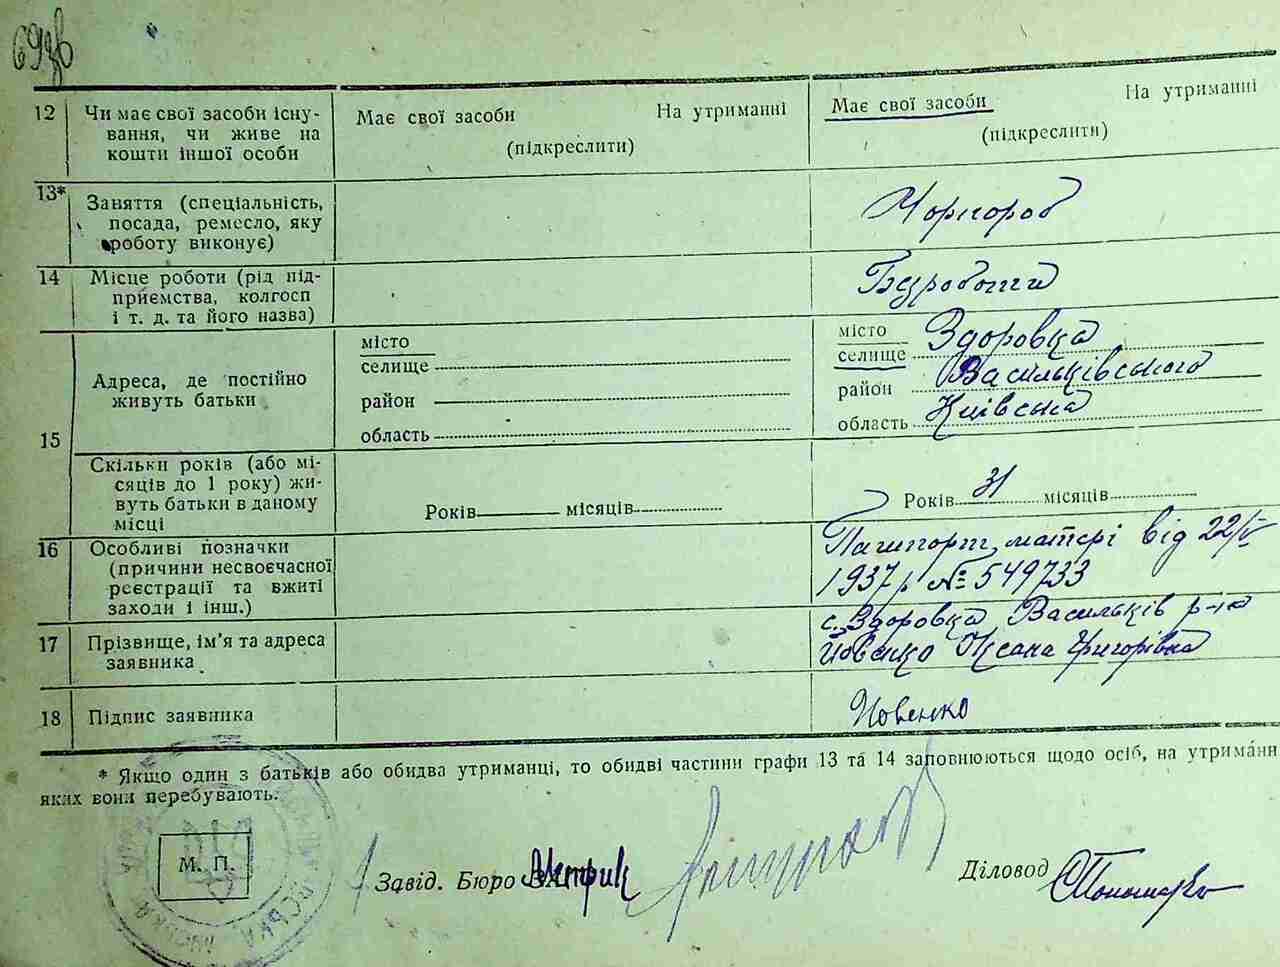 69зв
12 Чи має свої засоби існу-
вання, чи живе на
кошти іншої особи
Має свої засоби На утриманні
(підкреслити)
Має свої засоби На утриманні
(підкреслити)
13* Заняття (спеціальність,
посада, ремесло, яку
роботу виконує)
Чорнороб
14 Місце роботи (рід під-
приємства, колгосп
і т. д. та його назва)
Безробоття
15
Адреса, де постійно
живуть батьки
місто
селище
район
область
місто
селище Здоровка
район Васильківського
область Київська
Скільки років (або мі-
сяців до 1 року) жи-
вуть батьки в даному
місці
Років місяців
Років 31 місяців
16 Особливі позначки
(причини несвоєчасної
реєстрації та вжиті
заходи і інш.)
Пашпорт матері від 22/V
1937 р № 549733
17 Прізвище, ім'я та адреса
заявника
с. Здоровка Васильків р-на
Йовенко Ксана Григорівна
18 Підпис заявника
Йовенко
* Якщо один з батьків або обидва утриманці, то обидві частини графи 13 та 14 заповнюються щодо осіб, на утриманн
яких вони перебувають.
М. П.
Завід. Бюро Метрик
Діловод